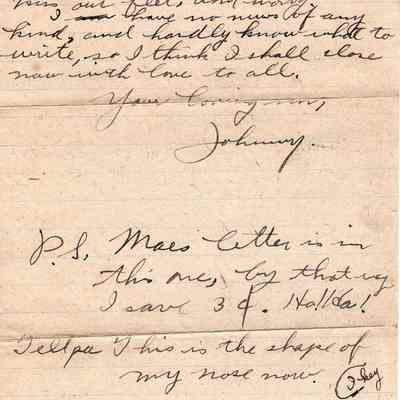 our feet, and
I have no news of any
kind, and hardly know what to
write, so I think I shall close
now with love to all.
Your loving son,
Johnny.
P.S. Maes' letter is in
this one, by that way
I save 3¢. Ha! Ha!
Tell pa This is the shape of
my nose now.